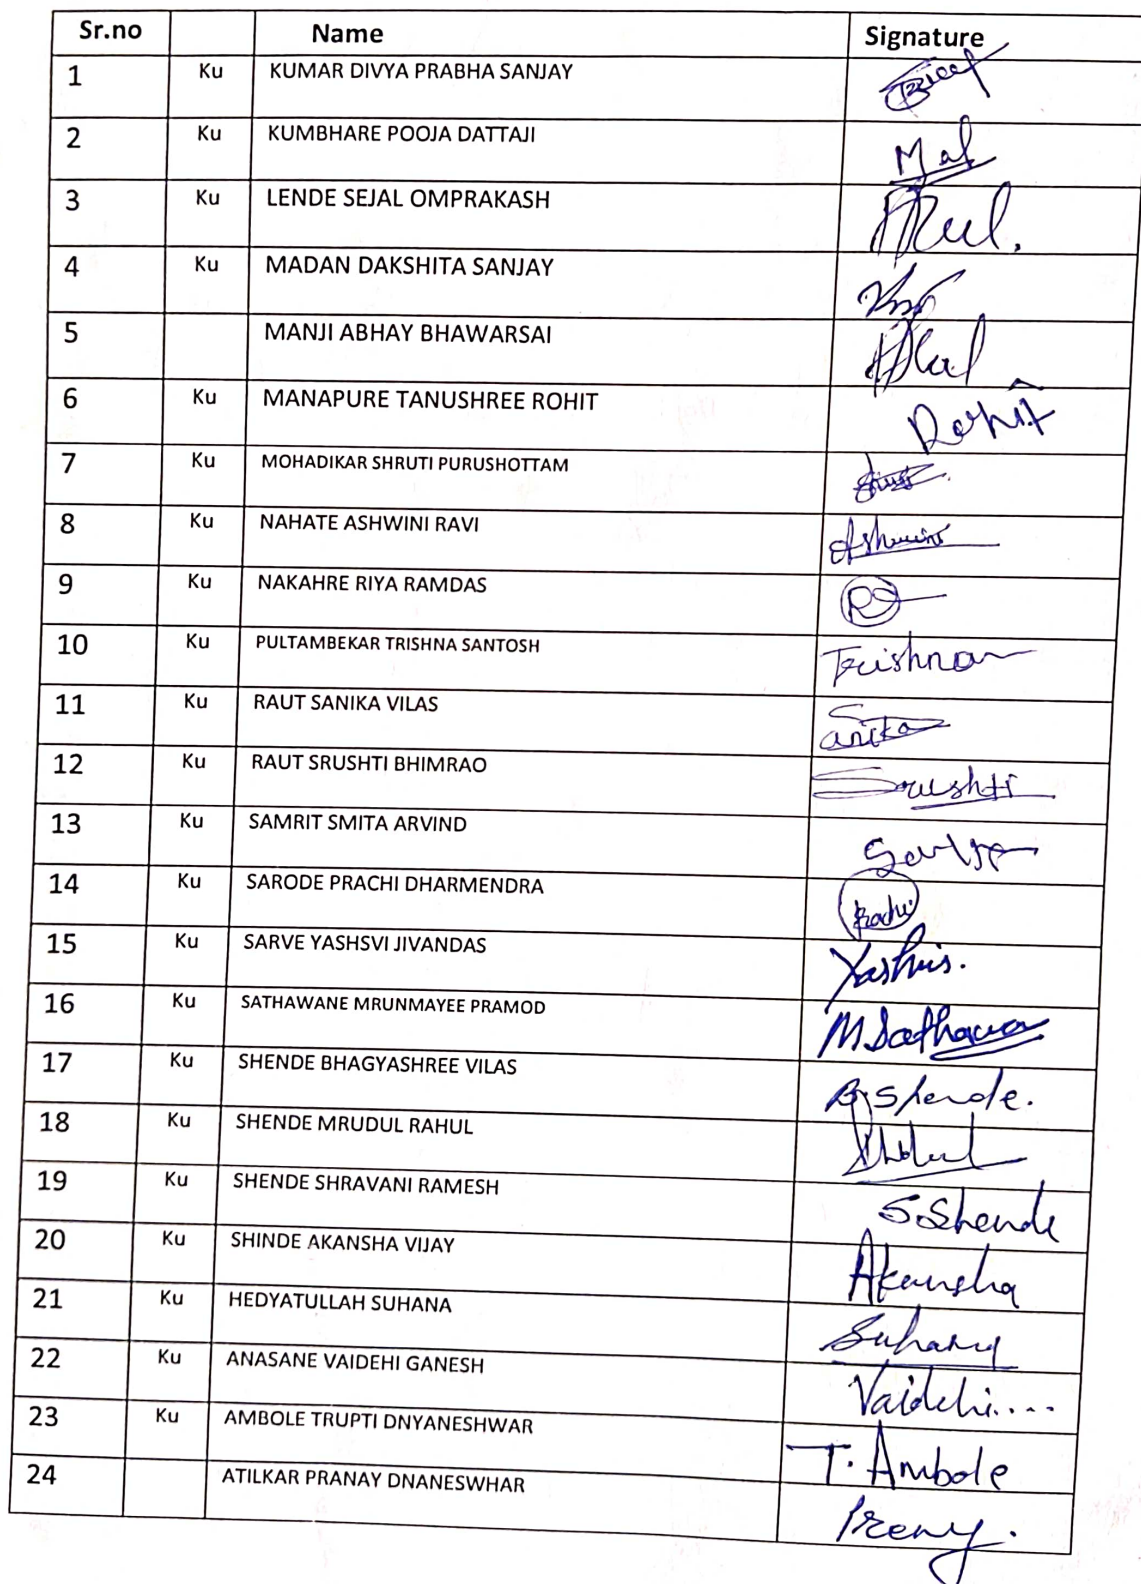 Sr.no Name Signature
1 Ku KUMAR DIVYA PRABHA SANJAY
2 Ku KUMBHARE POOJA DATTAJI
3 Ku LENDE SEJAL OMPRAKASH
4 Ku MADAN DAKSHITA SANJAY
5 MANJI ABHAY BHAWARSAI
6 Ku MANAPURE TANUSHREE ROHIT Rohit
7 Ku MOHADIKAR SHRUTI PURUSHOTTAM
8 Ku NAHATE ASHWINI RAVI Ashwini
9 Ku NAKAHRE RIYA RAMDAS
10 Ku PULTAMBEKAR TRISHNA SANTOSH Trishna
11 Ku RAUT SANIKA VILAS Sanika
12 Ku RAUT SRUSHTI BHIMRAO Srushti
13 Ku SAMRIT SMITA ARVIND
14 Ku SARODE PRACHI DHARMENDRA
15 Ku SARVE YASHSVI JIVANDAS
16 Ku SATHAWANE MRUNMAYEE PRAMOD
17 Ku SHENDE BHAGYASHREE VILAS B.Shende.
18 Ku SHENDE MRUDUL RAHUL
19 Ku SHENDE SHRAVANI RAMESH S.Shende
20 Ku SHINDE AKANSHA VIJAY Akansha
21 Ku HEDYATULLAH SUHANA
22 Ku ANASANE VAIDEHI GANESH Vaidehi....
23 Ku AMBOLE TRUPTI DNYANESHWAR T. Ambole
24 ATILKAR PRANAY DNANESWHAR